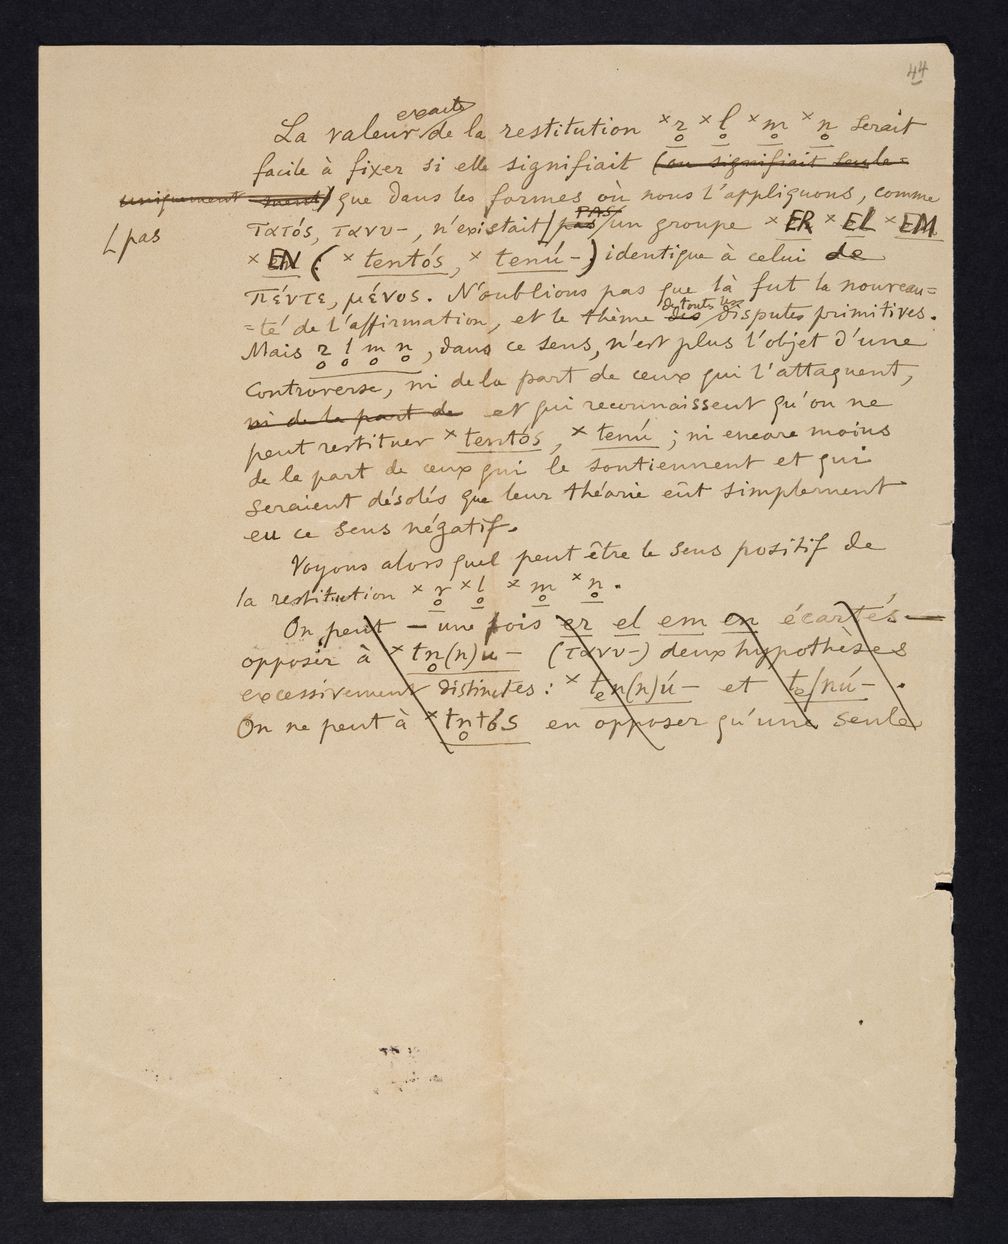 44
exacte
La valeur de la restitution ˣr̥ ˣl̥ ˣm̥ ˣn̥ serait
facile à fixer si elle signifiait (ou signifiait seule=
uniquement ment) que dans les formes où nous l'appliquons, comme
τατός, τανυ-, n'existait pas PAS un groupe ˣER ˣEL ˣEM
pas
ˣEN (ˣtentós, ˣtenú-) identique à celui de
πέντε, μένος. N'oublions pas que là fut la nouveau=
de toutes les
=té de l'affirmation, et le thème des disputes primitives.
Mais r̥ l̥ m̥ n̥, dans ce sens, n'est plus l'objet d'une
controverse, ni de la part de ceux qui l'attaquent,
ni de la part de et qui reconnaissent qu'on ne
peut restituer ˣtentós, ˣtenú ; ni encore moins
de la part de ceux qui le soutiennent et qui
seraient désolés que leur théorie eût simplement
eu ce sens négatif.
Voyons alors quel peut être le sens positif de
la restitution ˣr̥ ˣl̥ ˣm̥ ˣn̥.
On peut — une fois er el em en écartés —
opposer à ˣtn̥(n)u- (τανυ-) deux hypothèses
excessivement distinctes : ˣtₑn(n)ú- et tₑnú-.
On ne peut à ˣtn̥tós en opposer qu'une seule